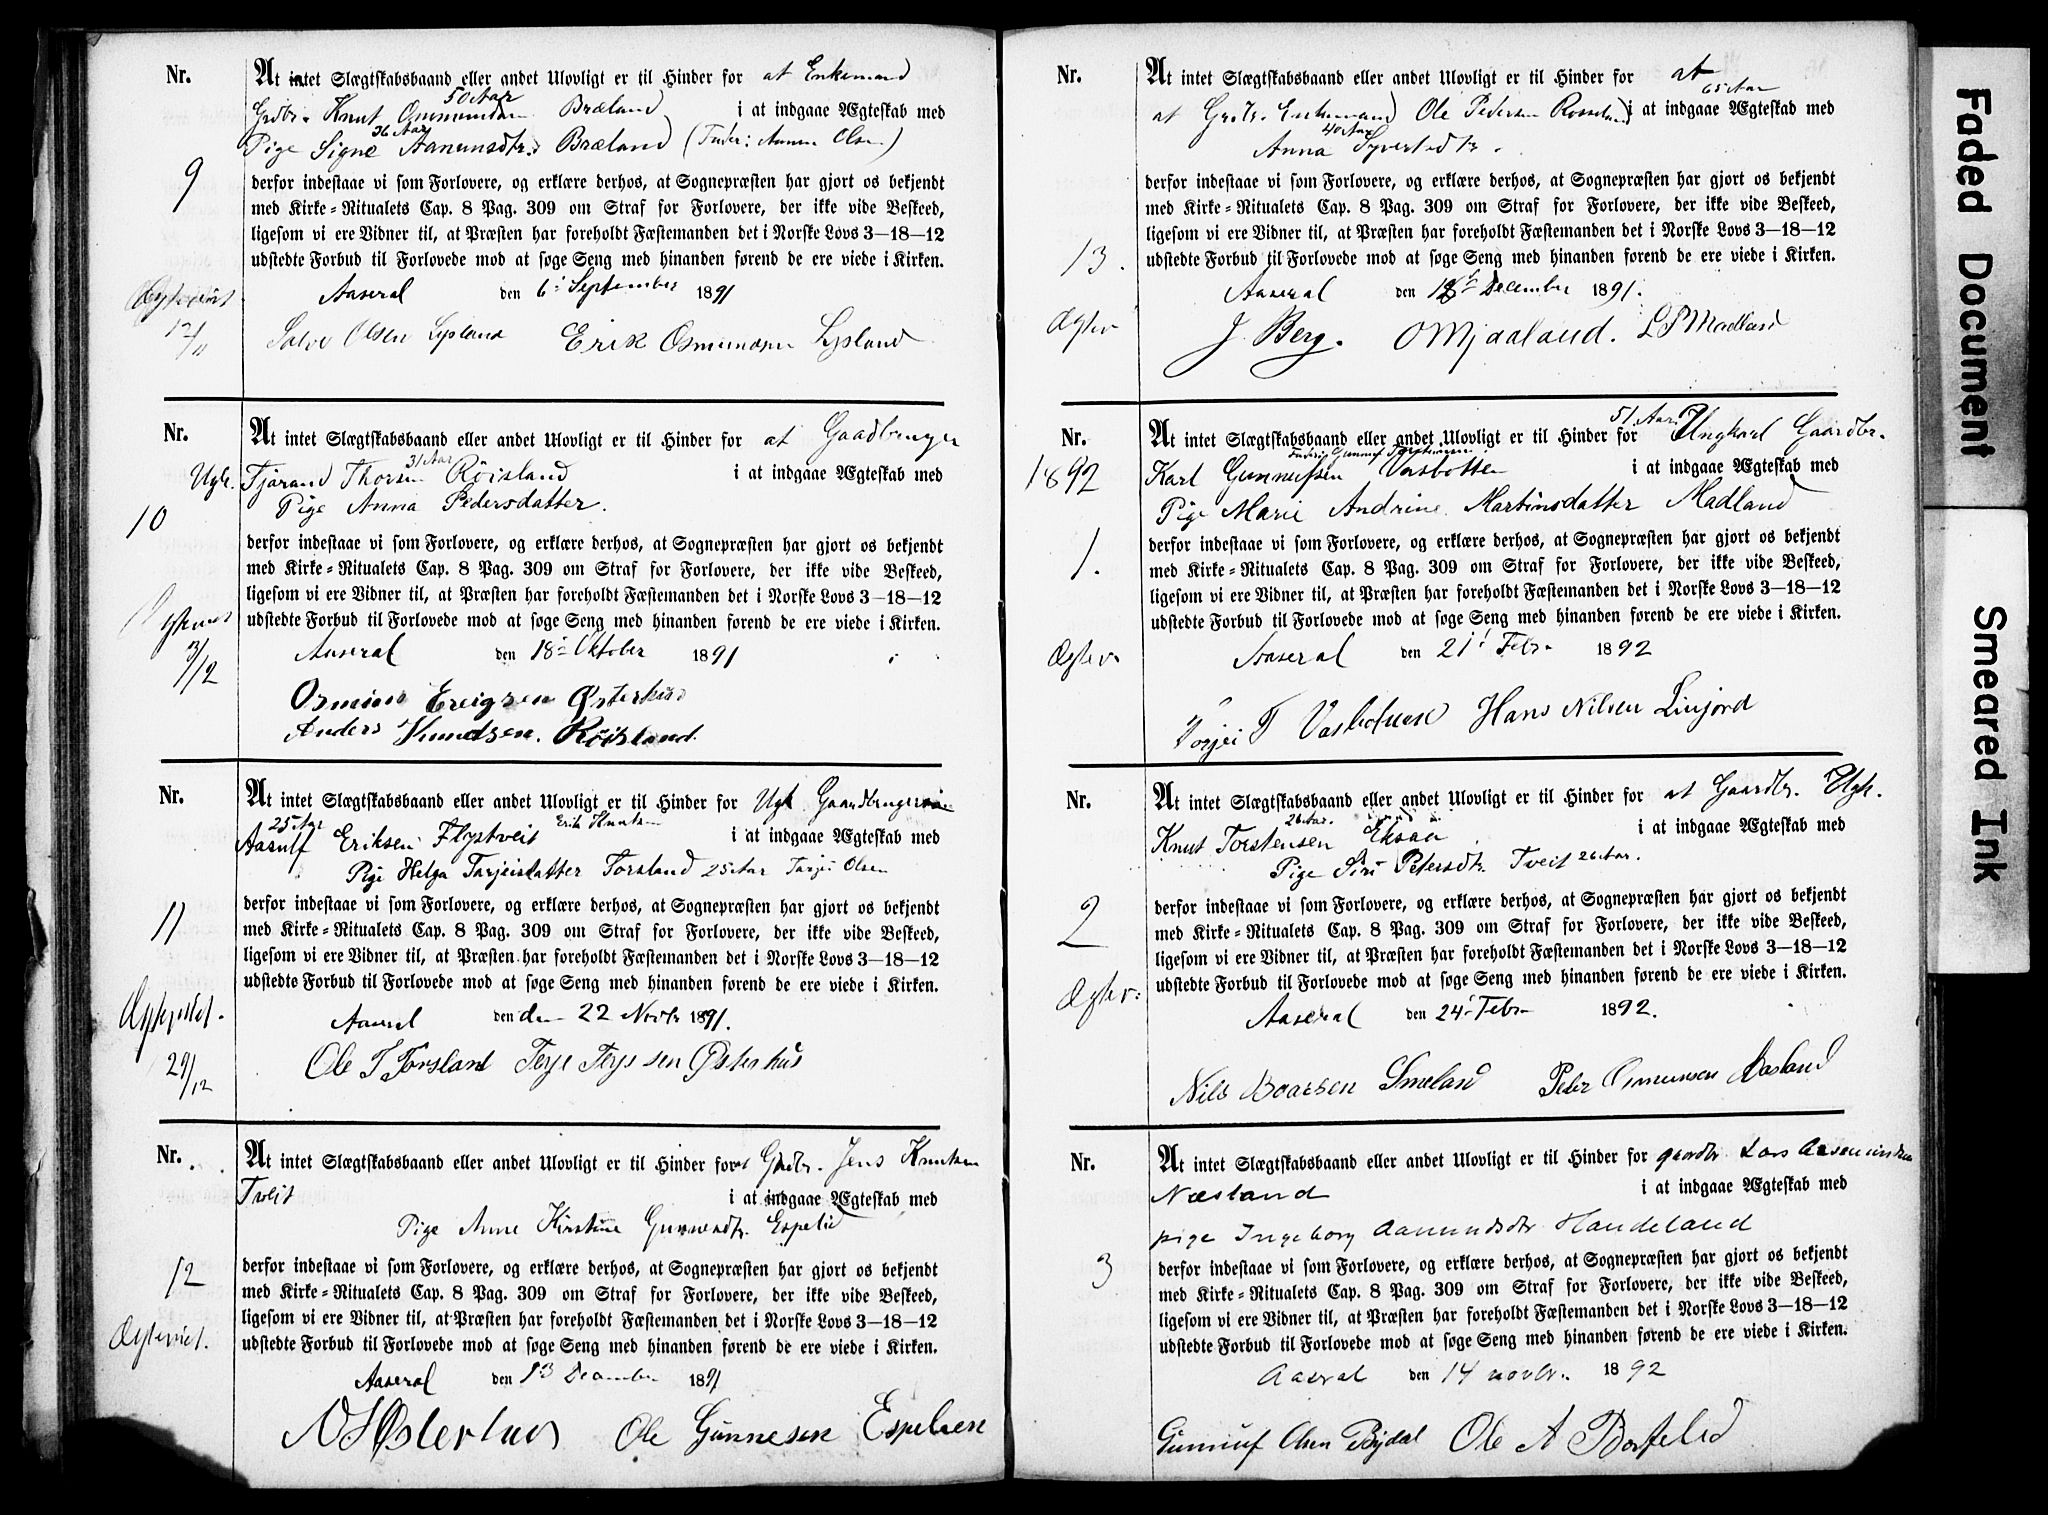 Nr.
At intet Slægtskabsbaand eller andet Ulovligt er til Hinder for at Enkemand
50 Aar
Grdbr. Knut Ommundsen Bræland i at indgaae Ægteskab med
36 Aar
Pige Signe Aanunsdtr. Bræland (Fader: Aanun Olsen)
9
derfor indestaae vi som Forlovere, og erklære derhos, at Sognepræsten har gjort os bekjendt
med Kirke=Ritualets Cap. 8 Pag. 309 om Straf for Forlovere, der ikke vide Beskeed,
ligesom vi ere Vidner til, at Præsten har foreholdt Fæstemanden det i Norske Lovs 3—18—12
udstedte Forbud til Forlovede mod at søge Seng med hinanden førend de ere viede i Kirken.
Ægteviet
12/11
Aaseral den 6 September 1891
Salve Olsen Lysland Erik Osmundsen Lysland
Nr.
At intet Slægtskabsbaand eller andet Ulovligt er til Hinder for at Gaardbruger
31 Aar
Ugk. Tjøran Thorsen Røisland i at indgaae Ægteskab med
Pige Anna Pedersdatter.
10
derfor indestaae vi som Forlovere, og erklære derhos, at Sognepræsten har gjort os bekjendt
med Kirke=Ritualets Cap. 8 Pag. 309 om Straf for Forlovere, der ikke vide Beskeed,
ligesom vi ere Vidner til, at Præsten har foreholdt Fæstemanden det i Norske Lovs 3—18—12
udstedte Forbud til Forlovede mod at søge Seng med hinanden førend de ere viede i Kirken.
Ægteviet
3/12
Aaseral den 18 Oktober 1891
Osmund Ereigsen Østerhus
Anders Knudsen. Røisland.
Nr.
At intet Slægtskabsbaand eller andet Ulovligt er til Hinder for Ugk Gaardbruger
25 Aar Erik Knutsen
Aasulf Eriksen Flystveit i at indgaae Ægteskab med
Pige Helga Tarjeisdatter Torsland 25 Aar Tarjei Olsen
11
derfor indestaae vi som Forlovere, og erklære derhos, at Sognepræsten har gjort os bekjendt
med Kirke=Ritualets Cap. 8 Pag. 309 om Straf for Forlovere, der ikke vide Beskeed,
ligesom vi ere Vidner til, at Præsten har foreholdt Fæstemanden det i Norske Lovs 3—18—12
udstedte Forbud til Forlovede mod at søge Seng med hinanden førend de ere viede i Kirken.
Ægteviet.
29/12
Aaseral den den 22 Novbr 1891.
Ole T Torsland Terje Terjesen Østerhus
Nr.
At intet Slægtskabsbaand eller andet Ulovligt er til Hinder for at Grdbr. Jens Knutsen
Tveit i at indgaae Ægteskab med
Pige Anne Kirstine Gunnesdtr. Espelid
12
derfor indestaae vi som Forlovere, og erklære derhos, at Sognepræsten har gjort os bekjendt
med Kirke=Ritualets Cap. 8 Pag. 309 om Straf for Forlovere, der ikke vide Beskeed,
ligesom vi ere Vidner til, at Præsten har foreholdt Fæstemanden det i Norske Lovs 3—18—12
udstedte Forbud til Forlovede mod at søge Seng med hinanden førend de ere viede i Kirken.
Ægteviet.
Aaseral den 13 December 1891
N Østerhus Ole Gunnesen Espelien
Nr.
At intet Slægtskabsbaand eller andet Ulovligt er til Hinder for at
65 Aar
at Grdbr. Enkemand Ole Pedersen Rosseland i at indgaae Ægteskab med
40 Aar
Anna Syvertsdtr.
13.
derfor indestaae vi som Forlovere, og erklære derhos, at Sognepræsten har gjort os bekjendt
med Kirke=Ritualets Cap. 8 Pag. 309 om Straf for Forlovere, der ikke vide Beskeed,
ligesom vi ere Vidner til, at Præsten har foreholdt Fæstemanden det i Norske Lovs 3—18—12
udstedte Forbud til Forlovede mod at søge Seng med hinanden førend de ere viede i Kirken.
Ægtev
Aaseral den December 1891.
J. Berg. O Mjaaland. L S Madland
Nr.
1892
At intet Slægtskabsbaand eller andet Ulovligt er til Hinder for 51 Aar Ungkarl Gaardbr.
Karl Gunnufsen Vasbotten i at indgaae Ægteskab med
Pige Marie Andrine Martinsdatter Madland
1.
derfor indestaae vi som Forlovere, og erklære derhos, at Sognepræsten har gjort os bekjendt
med Kirke=Ritualets Cap. 8 Pag. 309 om Straf for Forlovere, der ikke vide Beskeed,
ligesom vi ere Vidner til, at Præsten har foreholdt Fæstemanden det i Norske Lovs 3—18—12
udstedte Forbud til Forlovede mod at søge Seng med hinanden førend de ere viede i Kirken.
Ægtev.
Aaseral den 21 Febr. 1892
Torjei T Hans Nilsen Linjord
Nr.
At intet Slægtskabsbaand eller andet Ulovligt er til Hinder for at Gaardbr. Ugk.
26 Aar.
Knut Torstensen Eksaa i at indgaae Ægteskab med
Pige Siri Petersdtr. Tveit 26 Aar.
2
derfor indestaae vi som Forlovere, og erklære derhos, at Sognepræsten har gjort os bekjendt
med Kirke=Ritualets Cap. 8 Pag. 309 om Straf for Forlovere, der ikke vide Beskeed,
ligesom vi ere Vidner til, at Præsten har foreholdt Fæstemanden det i Norske Lovs 3—18—12
udstedte Forbud til Forlovede mod at søge Seng med hinanden førend de ere viede i Kirken.
Ægtev:
Aaseral den 24 Febr 1892.
Nils Boarsen Smeland Peder Osmunsen Aasland
Nr.
At intet Slægtskabsbaand eller andet Ulovligt er til Hinder for gaardbr Lars Aasmundsen
Næsland i at indgaae Ægteskab med
pige Ingeborg Aamundsdtr Handeland
3
derfor indestaae vi som Forlovere, og erklære derhos, at Sognepræsten har gjort os bekjendt
med Kirke=Ritualets Cap. 8 Pag. 309 om Straf for Forlovere, der ikke vide Beskeed,
ligesom vi ere Vidner til, at Præsten har foreholdt Fæstemanden det i Norske Lovs 3—18—12
udstedte Forbud til Forlovede mod at søge Seng med hinanden førend de ere viede i Kirken.
Aaseral den 14 novbr. 1892
Gunnuf Olsen Bøjdal Ole A
Faded Document
Smeared Ink